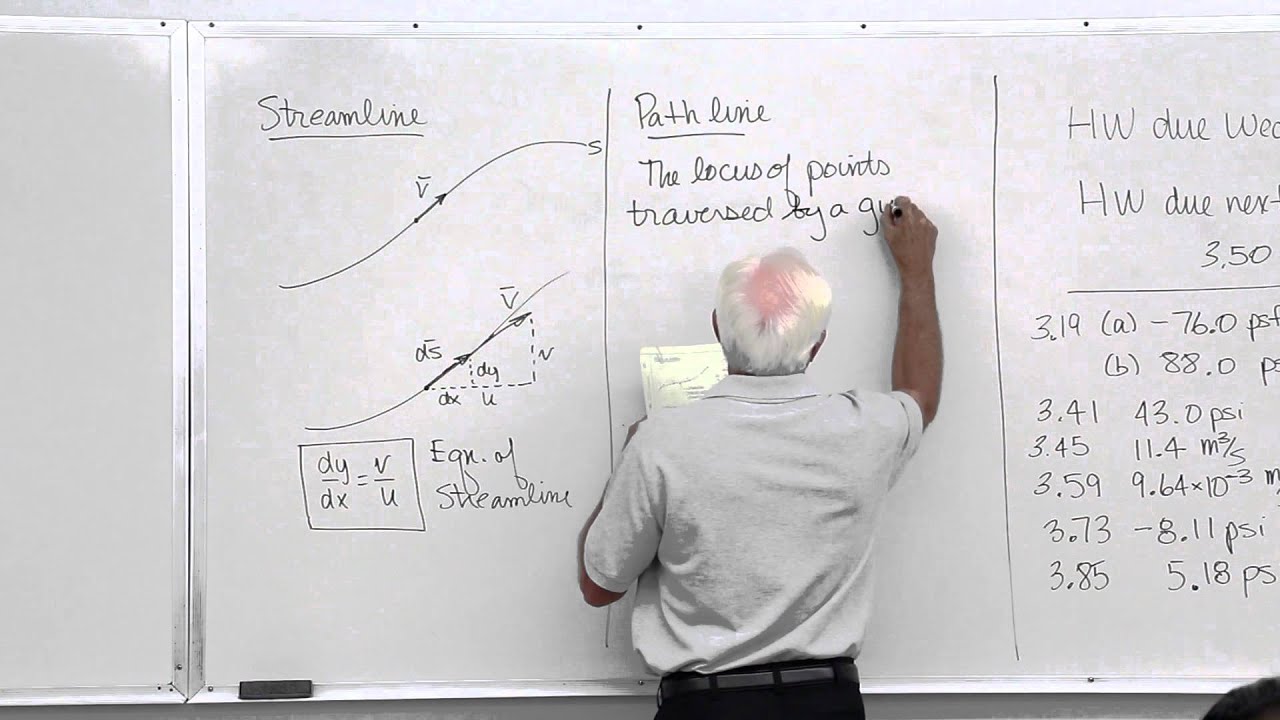 Streamline
S
V̄
V̄
ds̄
v
dy
dx
u
dy/dx = v/u
Eqn. of
Streamline
Path line
The locus of points
traversed by a
HW due
HW due next
3.50
3.19 (a) -76.0 psf
(b) 88.0
3.41 43.0 psi
3.45 11.4 m³/s
3.59 9.64×10⁻³
3.73 -8.11 psi
3.85 5.18